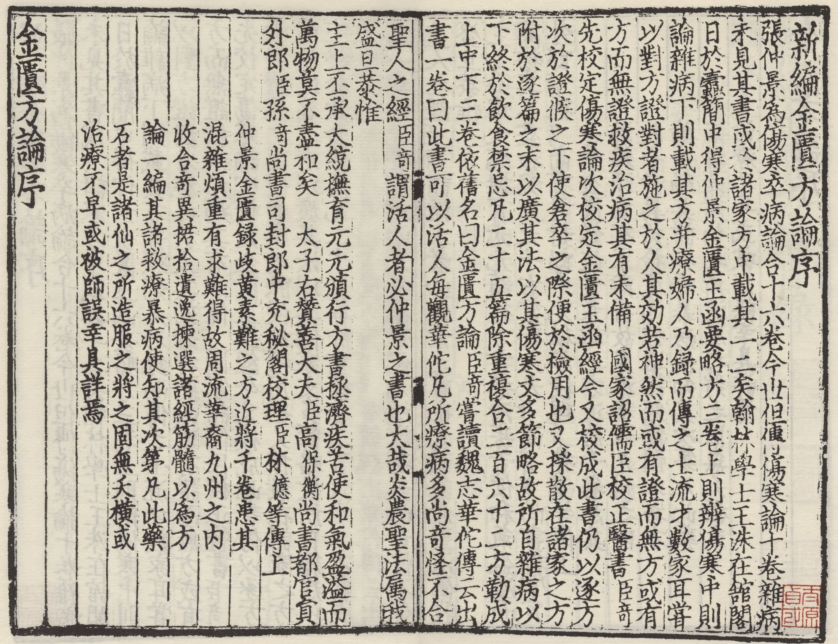 新編金匱方論序
張仲景爲傷寒卒病論合十六卷今世但傳傷寒論十卷雜病
未見其書或於諸家方中載其一二矣翰林學士王洙在館閣
日於蠹簡中得仲景金匱玉函要略方三卷上則辨傷寒中則
論雜病下則載其方并療婦人乃録而傳之士流才數家耳甞
以對方證對者施之於人其効若神然而或有證而無方或有
方而無證救疾治病其有未備 國家詔儒臣校正醫書臣奇
先校定傷寒論次校定金匱玉函經今又校成此書仍以逐方
次於證候之下使倉卒之際便於檢用也又採散在諸家之方
附於逐篇之末以廣其法以其傷寒文多節略故所自雜病以
下終於飲食禁忌凡二十五篇除重複合二百六十二方勒成
上中下三卷依舊名曰金匱方論臣奇甞讀魏志華佗傳云出
書一卷曰此書可以活人每觀華佗凡所療病多尚奇怪不合
聖人之經臣奇謂活人者必仲景之書也大哉炎農聖法屬我
盛旦恭惟
主上丕承大統撫育元元頒行方書拯濟疾苦使和氣盈溢而
萬物莫不盡和矣 太子右贊善大夫臣高保衡尚書都官員
外郎臣孫奇尚書司封郎中充秘閣校理臣林億等傳上
仲景金匱録岐黄素難之方近將千卷患其
混雜煩重有求難得故周流華裔九州之内
收合奇異捃拾遺逸揀選諸經筋髓以爲方
論一編其諸救療暴病使知其次第凡此藥
石者是諸仙之所造服之將之固無夭横或
治療不早或被師誤幸具詳焉
金匱方論序